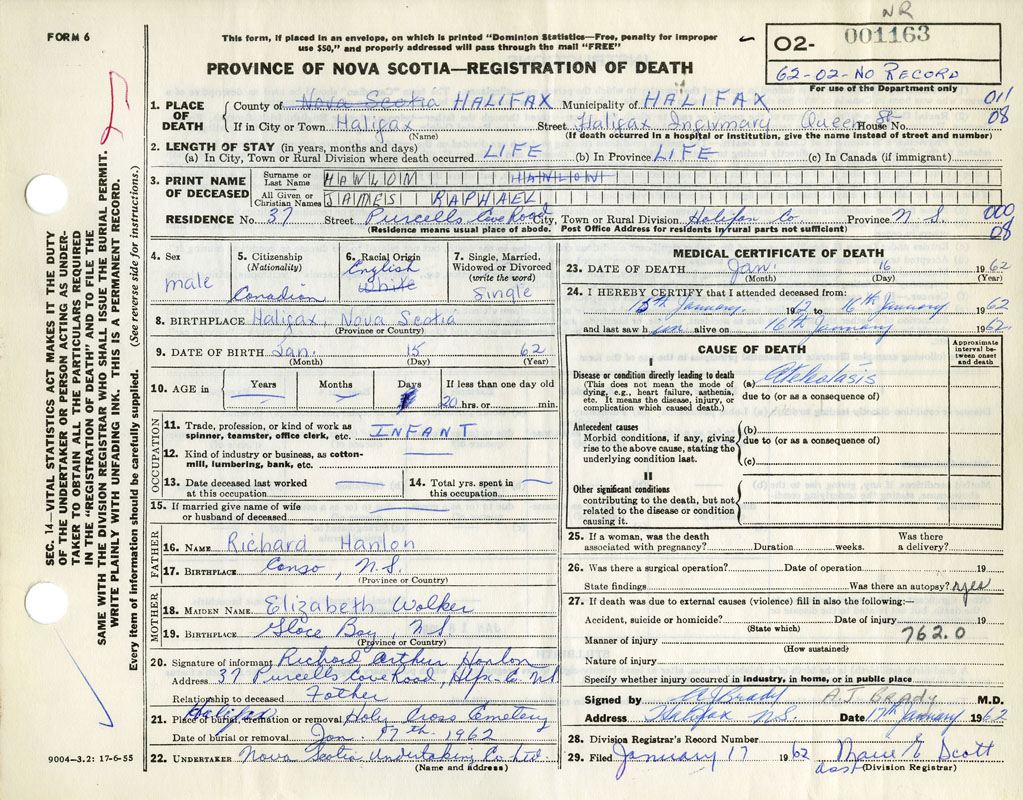 NR
FORM 6
This form, if placed in an envelope, on which is printed "Dominion Statistics—Free, penalty for improper
use $50," and properly addressed will pass through the mail "FREE"
02- 001163
62-02-NO RECORD
For use of the Department only
PROVINCE OF NOVA SCOTIA—REGISTRATION OF DEATH
1. PLACE OF DEATH County of Nova Scotia HALIFAX Municipality of HALIFAX 011
If in City or Town Halifax Street Halifax Infirmary Queen St- House No. 08
(Name) (If death occurred in a hospital or institution, give the name instead of street and number)
2. LENGTH OF STAY (in years, months and days)
(a) In City, Town or Rural Division where death occurred LIFE (b) In Province LIFE (c) In Canada (if immigrant)
3. PRINT NAME OF DECEASED
Surname or Last Name HANLON HANLON
All Given or Christian Names JAMES RAPHAEL
RESIDENCE No. 37 Street Purcells Cove Road City, Town or Rural Division Halifax Co Province N S. 000
(Residence means usual place of abode. Post Office Address for residents in rural parts not sufficient) 08
4. Sex male
5. Citizenship (Nationality) Canadian
6. Racial Origin English White
7. Single, Married, Widowed or Divorced (write the word) Single
8. BIRTHPLACE Halifax, Nova Scotia
(Province or Country)
9. DATE OF BIRTH Jan. 15 62
(Month) (Day) (Year)
10. AGE in Years Months Days If less than one day old
20 hrs. or min.
OCCUPATION
11. Trade, profession, or kind of work as
spinner, teamster, office clerk, etc. INFANT
12. Kind of industry or business, as cotton-
mill, lumbering, bank, etc.
13. Date deceased last worked
at this occupation
14. Total yrs. spent in
this occupation
15. If married give name of wife
or husband of deceased
FATHER
16. NAME Richard Hanlon
17. BIRTHPLACE Canso, N.S.
(Province or Country)
MOTHER
18. MAIDEN NAME Elizabeth Walker
19. BIRTHPLACE Glace Bay, N.S.
(Province or Country)
20. Signature of informant Richard Arthur Hanlon
Address 37 Purcells Cove Road, Hfx. Co. NS
Relationship to deceased Father
21. Place of burial, cremation or removal Halifax Holy Cross Cemetery
Date of burial or removal Jan. 17th. 1962
22. UNDERTAKER Nova Scotia Undertaking Co Ltd
(Name and address)
MEDICAL CERTIFICATE OF DEATH
23. DATE OF DEATH Jan. 16 1962
(Month) (Day) (Year)
24. I HEREBY CERTIFY that I attended deceased from:
15th January 1962 to 16th January 1962
and last saw him alive on 16th January 1962.
CAUSE OF DEATH
Approximate interval between onset and death
I
Disease or condition directly leading to death
(This does not mean the mode of
dying, e.g., heart failure, asthenia,
etc. It means the disease, injury, or
complication which caused death.)
(a) Atelectasis
due to (or as a consequence of)
Antecedent causes
Morbid conditions, if any, giving
rise to the above cause, stating the
underlying condition last.
(b)
due to (or as a consequence of)
(c)
II
Other significant conditions
contributing to the death, but not
related to the disease or condition
causing it.
25. If a woman, was the death
associated with pregnancy? Duration weeks. Was there
a delivery?
26. Was there a surgical operation? Date of operation 19
State findings Was there an autopsy? yes
27. If death was due to external causes (violence) fill in also the following:—
Accident, suicide or homicide? Date of injury 19
(State which) 762.0
Manner of injury
(How sustained)
Nature of injury
Specify whether injury occurred in industry, in home, or in public place
Signed by AJ Brady A.J Brady M.D.
Address Halifax N.S. Date 17th January 1962
28. Division Registrar's Record Number
29. Filed January 17 1962 Marie E. Scott
(Division Registrar)
SEC. 14—VITAL STATISTICS ACT MAKES IT THE DUTY
OF THE UNDERTAKER OR PERSON ACTING AS UNDER-
TAKER TO OBTAIN ALL THE PARTICULARS REQUIRED
IN THE "REGISTRATION OF DEATH" AND TO FILE THE
SAME WITH THE DIVISION REGISTRAR WHO SHALL ISSUE THE BURIAL PERMIT.
WRITE PLAINLY WITH UNFADING INK. THIS IS A PERMANENT RECORD.
Every item of information should be carefully supplied. (See reverse side for instructions.)
9004-3.2: 17-6-55